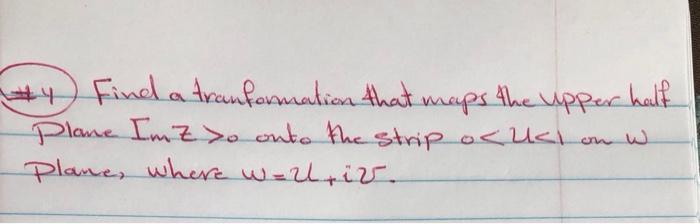 #4 Find a tranformation that maps the upper half
Plane Im Z > 0 onto the strip 0 < U < 1 on w
Plane, where w = U + i V.